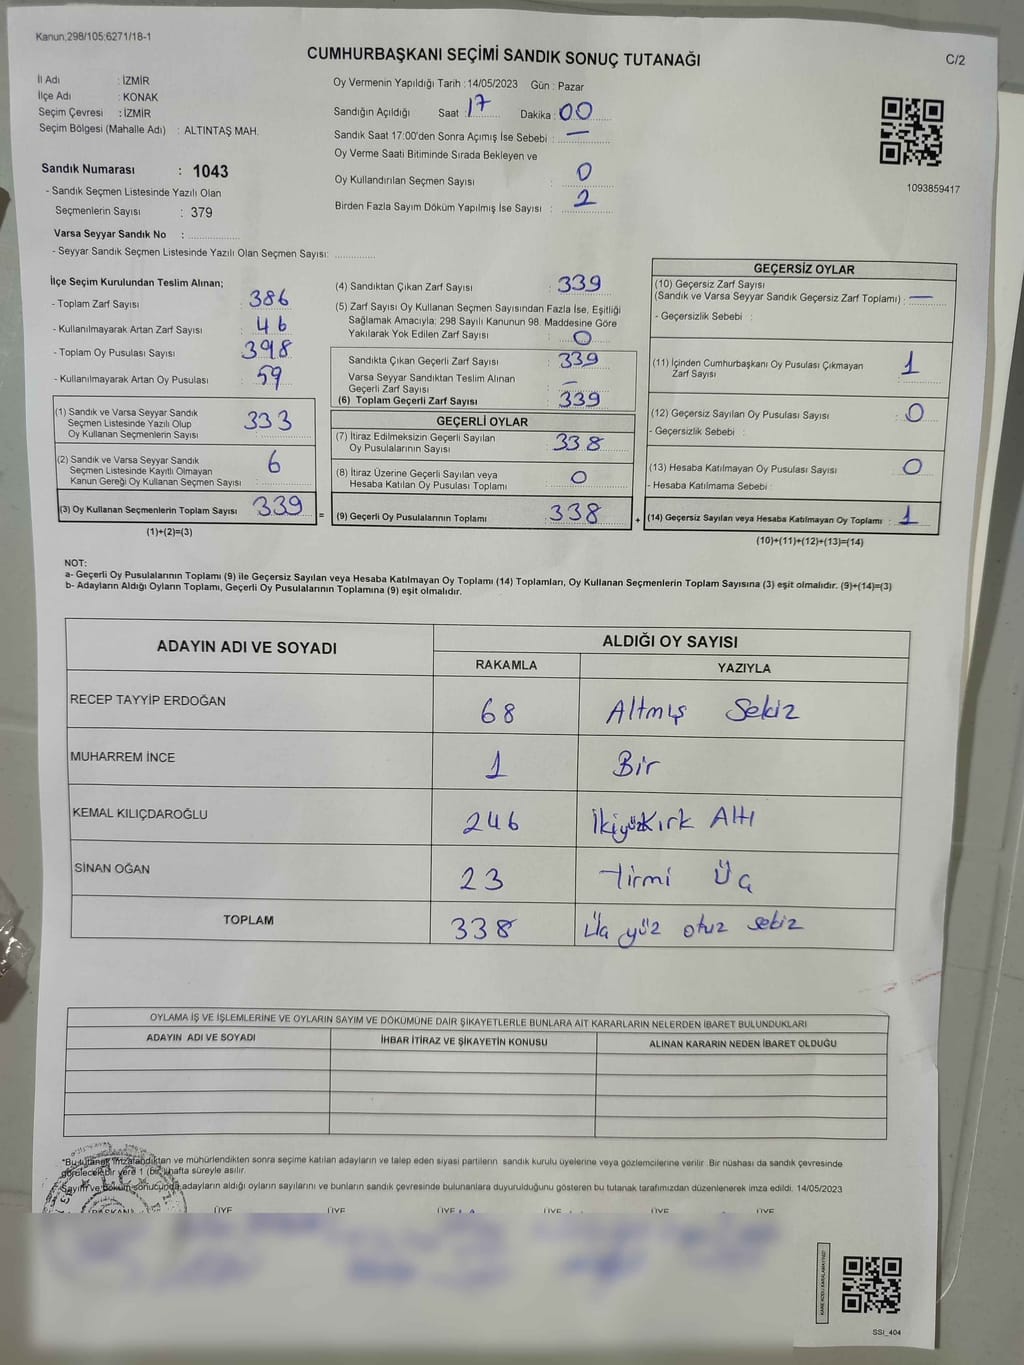 Kanun,298/105;6271/18-1
CUMHURBAŞKANI SEÇİMİ SANDIK SONUÇ TUTANAĞI
C/2
İl Adı : İZMİR
İlçe Adı : KONAK
Seçim Çevresi : İZMİR
Seçim Bölgesi (Mahalle Adı) : ALTINTAŞ MAH.
Sandık Numarası : 1043
- Sandık Seçmen Listesinde Yazılı Olan
Seçmenlerin Sayısı : 379
Varsa Seyyar Sandık No :
- Seyyar Sandık Seçmen Listesinde Yazılı Olan Seçmen Sayısı:
Oy Vermenin Yapıldığı Tarih : 14/05/2023 Gün : Pazar
Sandığın Açıldığı Saat : 17 Dakika : 00
Sandık Saat 17:00'den Sonra Açımış İse Sebebi : —
Oy Verme Saati Bitiminde Sırada Bekleyen ve
Oy Kullandırılan Seçmen Sayısı : 0
Birden Fazla Sayım Döküm Yapılmış İse Sayısı : 2
1093859417
İlçe Seçim Kurulundan Teslim Alınan;
- Toplam Zarf Sayısı : 386
- Kullanılmayarak Artan Zarf Sayısı : 46
- Toplam Oy Pusulası Sayısı : 398
- Kullanılmayarak Artan Oy Pusulası : 59
(1) Sandık ve Varsa Seyyar Sandık
Seçmen Listesinde Yazılı Olup
Oy Kullanan Seçmenlerin Sayısı : 333
(2) Sandık ve Varsa Seyyar Sandık
Seçmen Listesinde Kayıtlı Olmayan
Kanun Gereği Oy Kullanan Seçmen Sayısı : 6
(3) Oy Kullanan Seçmenlerin Toplam Sayısı : 339
(1)+(2)=(3)
(4) Sandıktan Çıkan Zarf Sayısı : 339
(5) Zarf Sayısı Oy Kullanan Seçmen Sayısından Fazla İse, Eşitliği
Sağlamak Amacıyla; 298 Sayılı Kanunun 98. Maddesine Göre
Yakılarak Yok Edilen Zarf Sayısı : 0
Sandıkta Çıkan Geçerli Zarf Sayısı : 339
Varsa Seyyar Sandıktan Teslim Alınan
Geçerli Zarf Sayısı : —
(6) Toplam Geçerli Zarf Sayısı : 339
GEÇERLİ OYLAR
(7) İtiraz Edilmeksizin Geçerli Sayılan
Oy Pusulalarının Sayısı : 338
(8) İtiraz Üzerine Geçerli Sayılan veya
Hesaba Katılan Oy Pusulası Toplamı : 0
= (9) Geçerli Oy Pusulalarının Toplamı : 338
GEÇERSİZ OYLAR
(10) Geçersiz Zarf Sayısı
(Sandık ve Varsa Seyyar Sandık Geçersiz Zarf Toplamı) : —
- Geçersizlik Sebebi :
(11) İçinden Cumhurbaşkanı Oy Pusulası Çıkmayan
Zarf Sayısı : 1
(12) Geçersiz Sayılan Oy Pusulası Sayısı : 0
- Geçersizlik Sebebi :
(13) Hesaba Katılmayan Oy Pusulası Sayısı : 0
- Hesaba Katılmama Sebebi :
+ (14) Geçersiz Sayılan veya Hesaba Katılmayan Oy Toplamı : 1
(10)+(11)+(12)+(13)=(14)
NOT:
a- Geçerli Oy Pusulalarının Toplamı (9) ile Geçersiz Sayılan veya Hesaba Katılmayan Oy Toplamı (14) Toplamları, Oy Kullanan Seçmenlerin Toplam Sayısına (3) eşit olmalıdır. (9)+(14)=(3)
b- Adayların Aldığı Oyların Toplamı, Geçerli Oy Pusulalarının Toplamına (9) eşit olmalıdır.
ADAYIN ADI VE SOYADI ALDIĞI OY SAYISI
RAKAMLA YAZIYLA
RECEP TAYYİP ERDOĞAN 68 Altmış Sekiz
MUHARREM İNCE 1 Bir
KEMAL KILIÇDAROĞLU 246 İkiyüzkırk Altı
SİNAN OĞAN 23 Yirmi Üç
TOPLAM 338 Üç yüz otuz sekiz
OYLAMA İŞ VE İŞLEMLERİNE VE OYLARIN SAYIM VE DÖKÜMÜNE DAİR ŞİKAYETLERLE BUNLARA AİT KARARLARIN NELERDEN İBARET BULUNDUKLARI
ADAYIN ADI VE SOYADI İHBAR İTİRAZ VE ŞİKAYETİN KONUSU ALINAN KARARIN NEDEN İBARET OLDUĞU
*Bu tutanak imzalandıktan ve mühürlendikten sonra seçime katılan adayların ve talep eden siyasi partilerin sandık kurulu üyelerine veya gözlemcilerine verilir. Bir nüshası da sandık çevresinde
görülecek bir yere 1 (bir) hafta süreyle asılır.
Sayım ve döküm sonucunda adayların aldığı oyların sayılarını ve bunların sandık çevresinde bulunanlara duyurulduğunu gösteren bu tutanak tarafımızdan düzenlenerek imza edildi. 14/05/2023
BAŞKAN ÜYE ÜYE ÜYE ÜYE ÜYE ÜYE
SSI_404